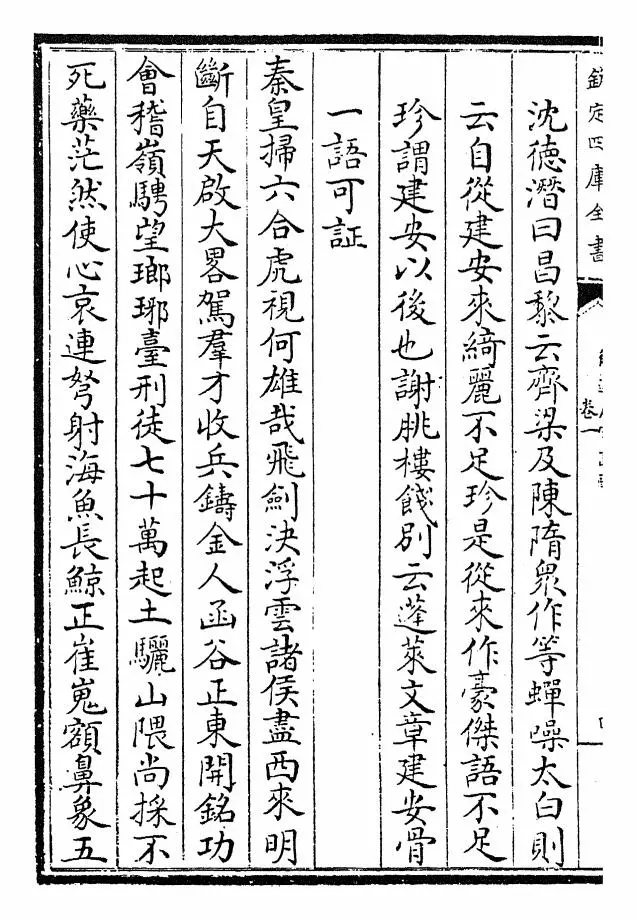 欽定四庫全書
卷一
沈德潛曰昌黎云齊梁及陳隋衆作等蟬噪太白則
云自從建安來綺麗不足珍是從來作豪傑語不足
珍謂建安以後也謝朓樓餞別云蓬萊文章建安骨
一語可証
秦皇掃六合虎視何雄哉飛劍決浮雲諸侯盡西來明
斷自天啟大畧駕羣才收兵鑄金人函谷正東開銘功
會稽嶺騁望瑯琊臺刑徒七十萬起土驪山隈尚採不
死藥茫然使心哀連弩射海魚長鯨正崔嵬額鼻象五